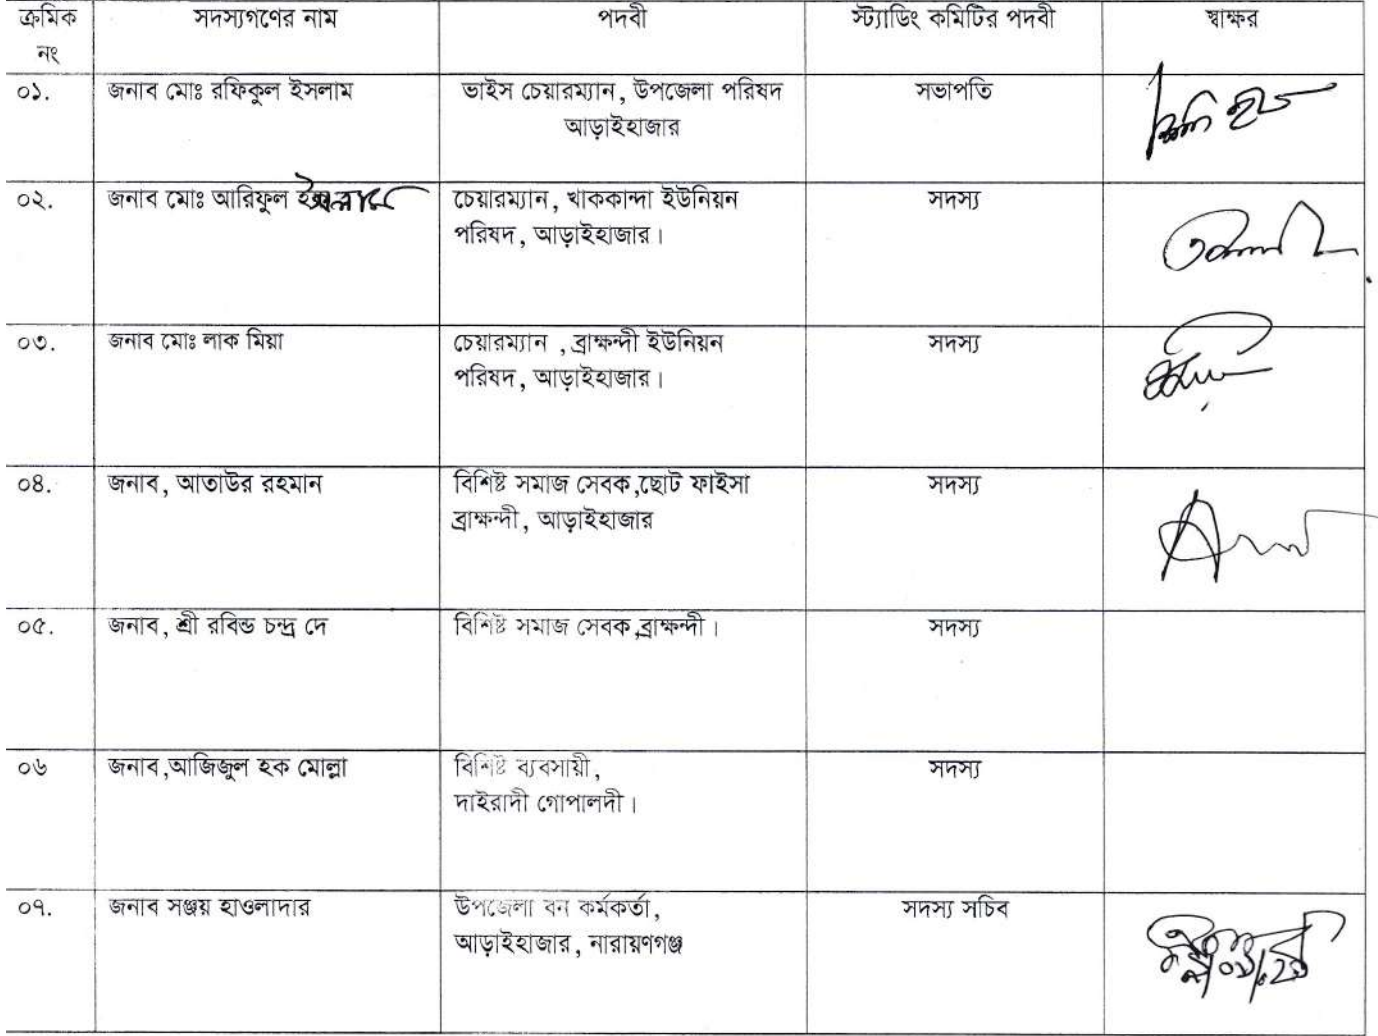 ক্রমিক নং সদস্যগণের নাম পদবী স্ট্যাডিং কমিটির পদবী স্বাক্ষর
০১. জনাব মোঃ রফিকুল ইসলাম ভাইস চেয়ারম্যান, উপজেলা পরিষদ সভাপতি
আড়াইহাজার
০২. জনাব মোঃ আরিফুল চেয়ারম্যান, খাককান্দা ইউনিয়ন সদস্য
পরিষদ, আড়াইহাজার।
০৩. জনাব মোঃ লাক মিয়া চেয়ারম্যান , ব্রাক্ষন্দী ইউনিয়ন সদস্য
পরিষদ, আড়াইহাজার।
০৪. জনাব, আতাউর রহমান বিশিষ্ট সমাজ সেবক,ছোট ফাইসা সদস্য
ব্রাক্ষন্দী, আড়াইহাজার
০৫. জনাব, শ্রী রবিন্ড চন্দ্র দে বিশিষ্ট সমাজ সেবক,ব্রাক্ষন্দী। সদস্য
০৬ জনাব,আজিজুল হক মোল্লা বিশিষ্ট ব্যবসায়ী, সদস্য
দাইরাদী গোপালদী।
০৭. জনাব সঞ্জয় হাওলাদার উপজেলা বন কর্মকর্তা, সদস্য সচিব
আড়াইহাজার, নারায়ণগঞ্জ